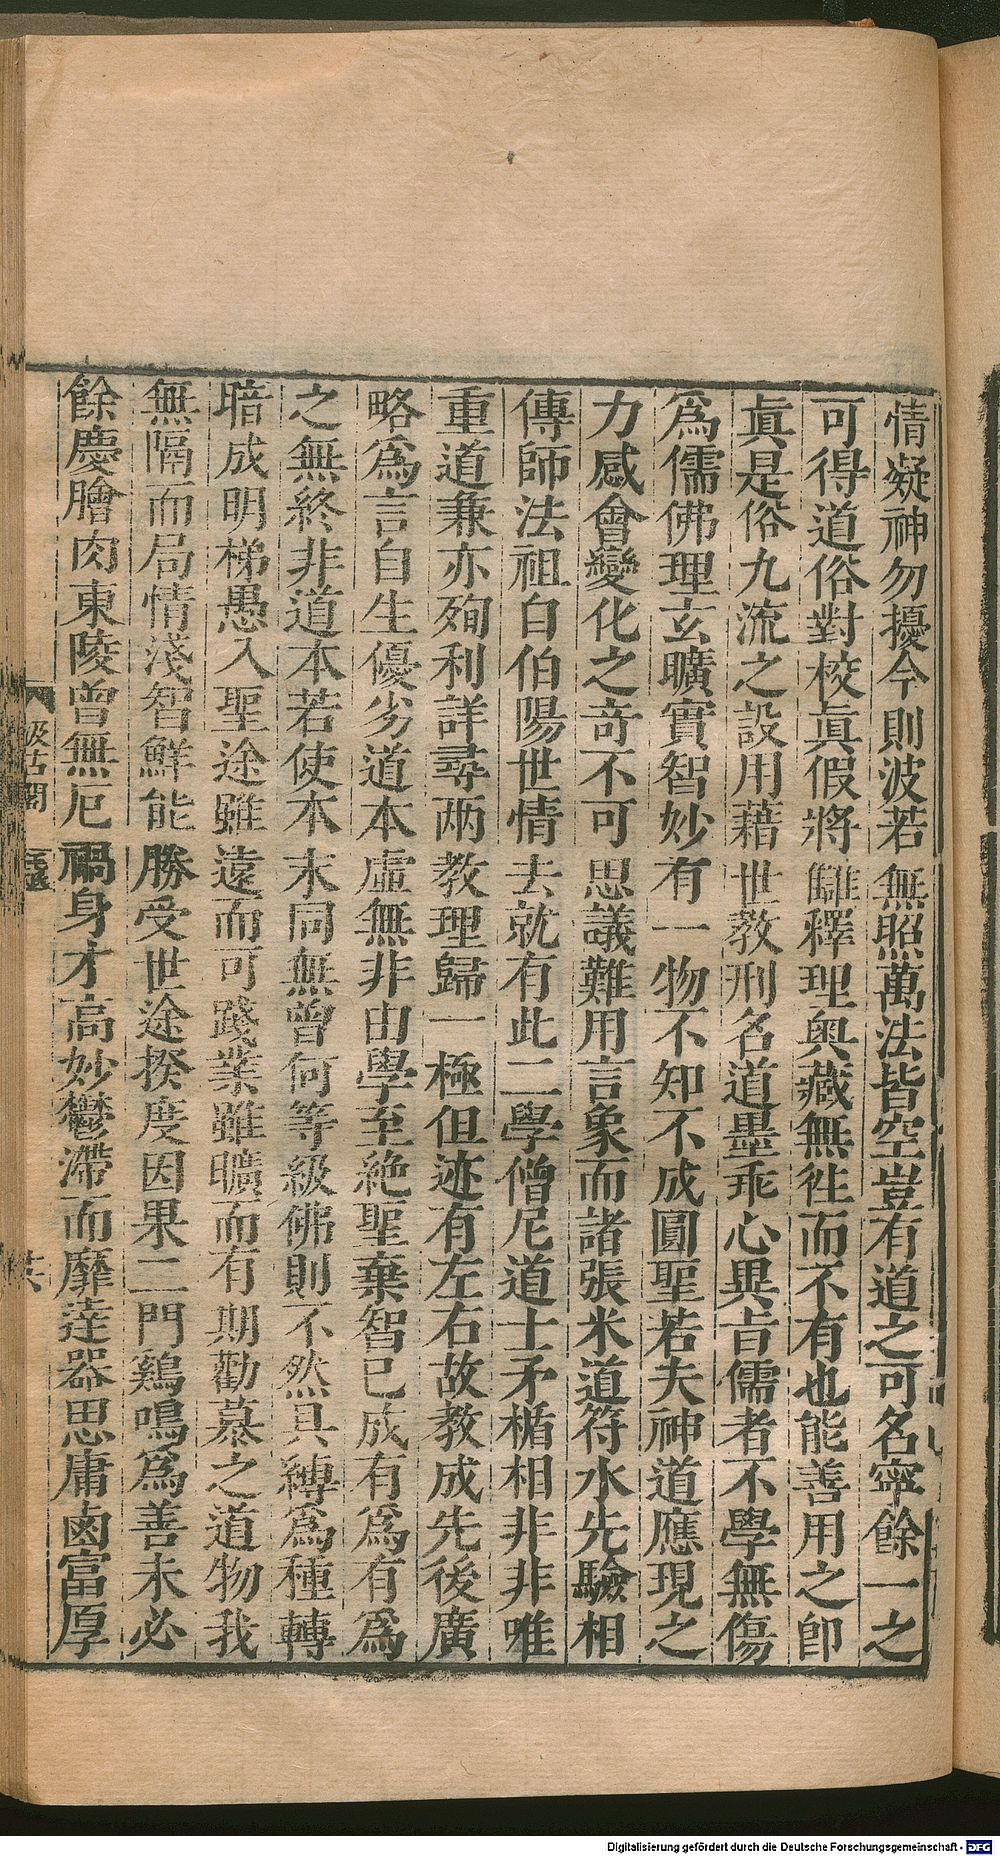 情凝神勿擾今則波若無照萬法皆空豈有道之可名寧餘一之
可得道俗對校眞假將讎釋理奥藏無徃而不有也能善用之卽
眞是俗九流之設用藉世教刑名道墨乖心異旨儒者不學無傷
爲儒佛理玄曠實智妙有一物不知不成圓聖若夫神道應現之
力感會變化之竒不可思議難用言象而諸張米道符水先驗相
傳師法祖自伯陽世情去就有此二學僧尼道士矛楯相非非唯
重道兼亦殉利詳尋兩教理歸一極但迹有左右故教成先後廣
略爲言自生優劣道本虛無非由學至絶聖棄智已成有爲有爲
之無終非道本若使本末同無曾何等級佛則不然具縛爲種轉
暗成明梯愚入聖途雖遠而可踐業雖曠而有期勸慕之道物我
無隔而局情淺智鮮能勝受世途揆度因果二門鷄鳴爲善未必
餘慶膾肉東陵曾無厄禍身才高妙鬱滯而靡達器思庸鹵富厚
汲古閣
Digitalisierung gefördert durch die Deutsche Forschungsgemeinschaft - DFG